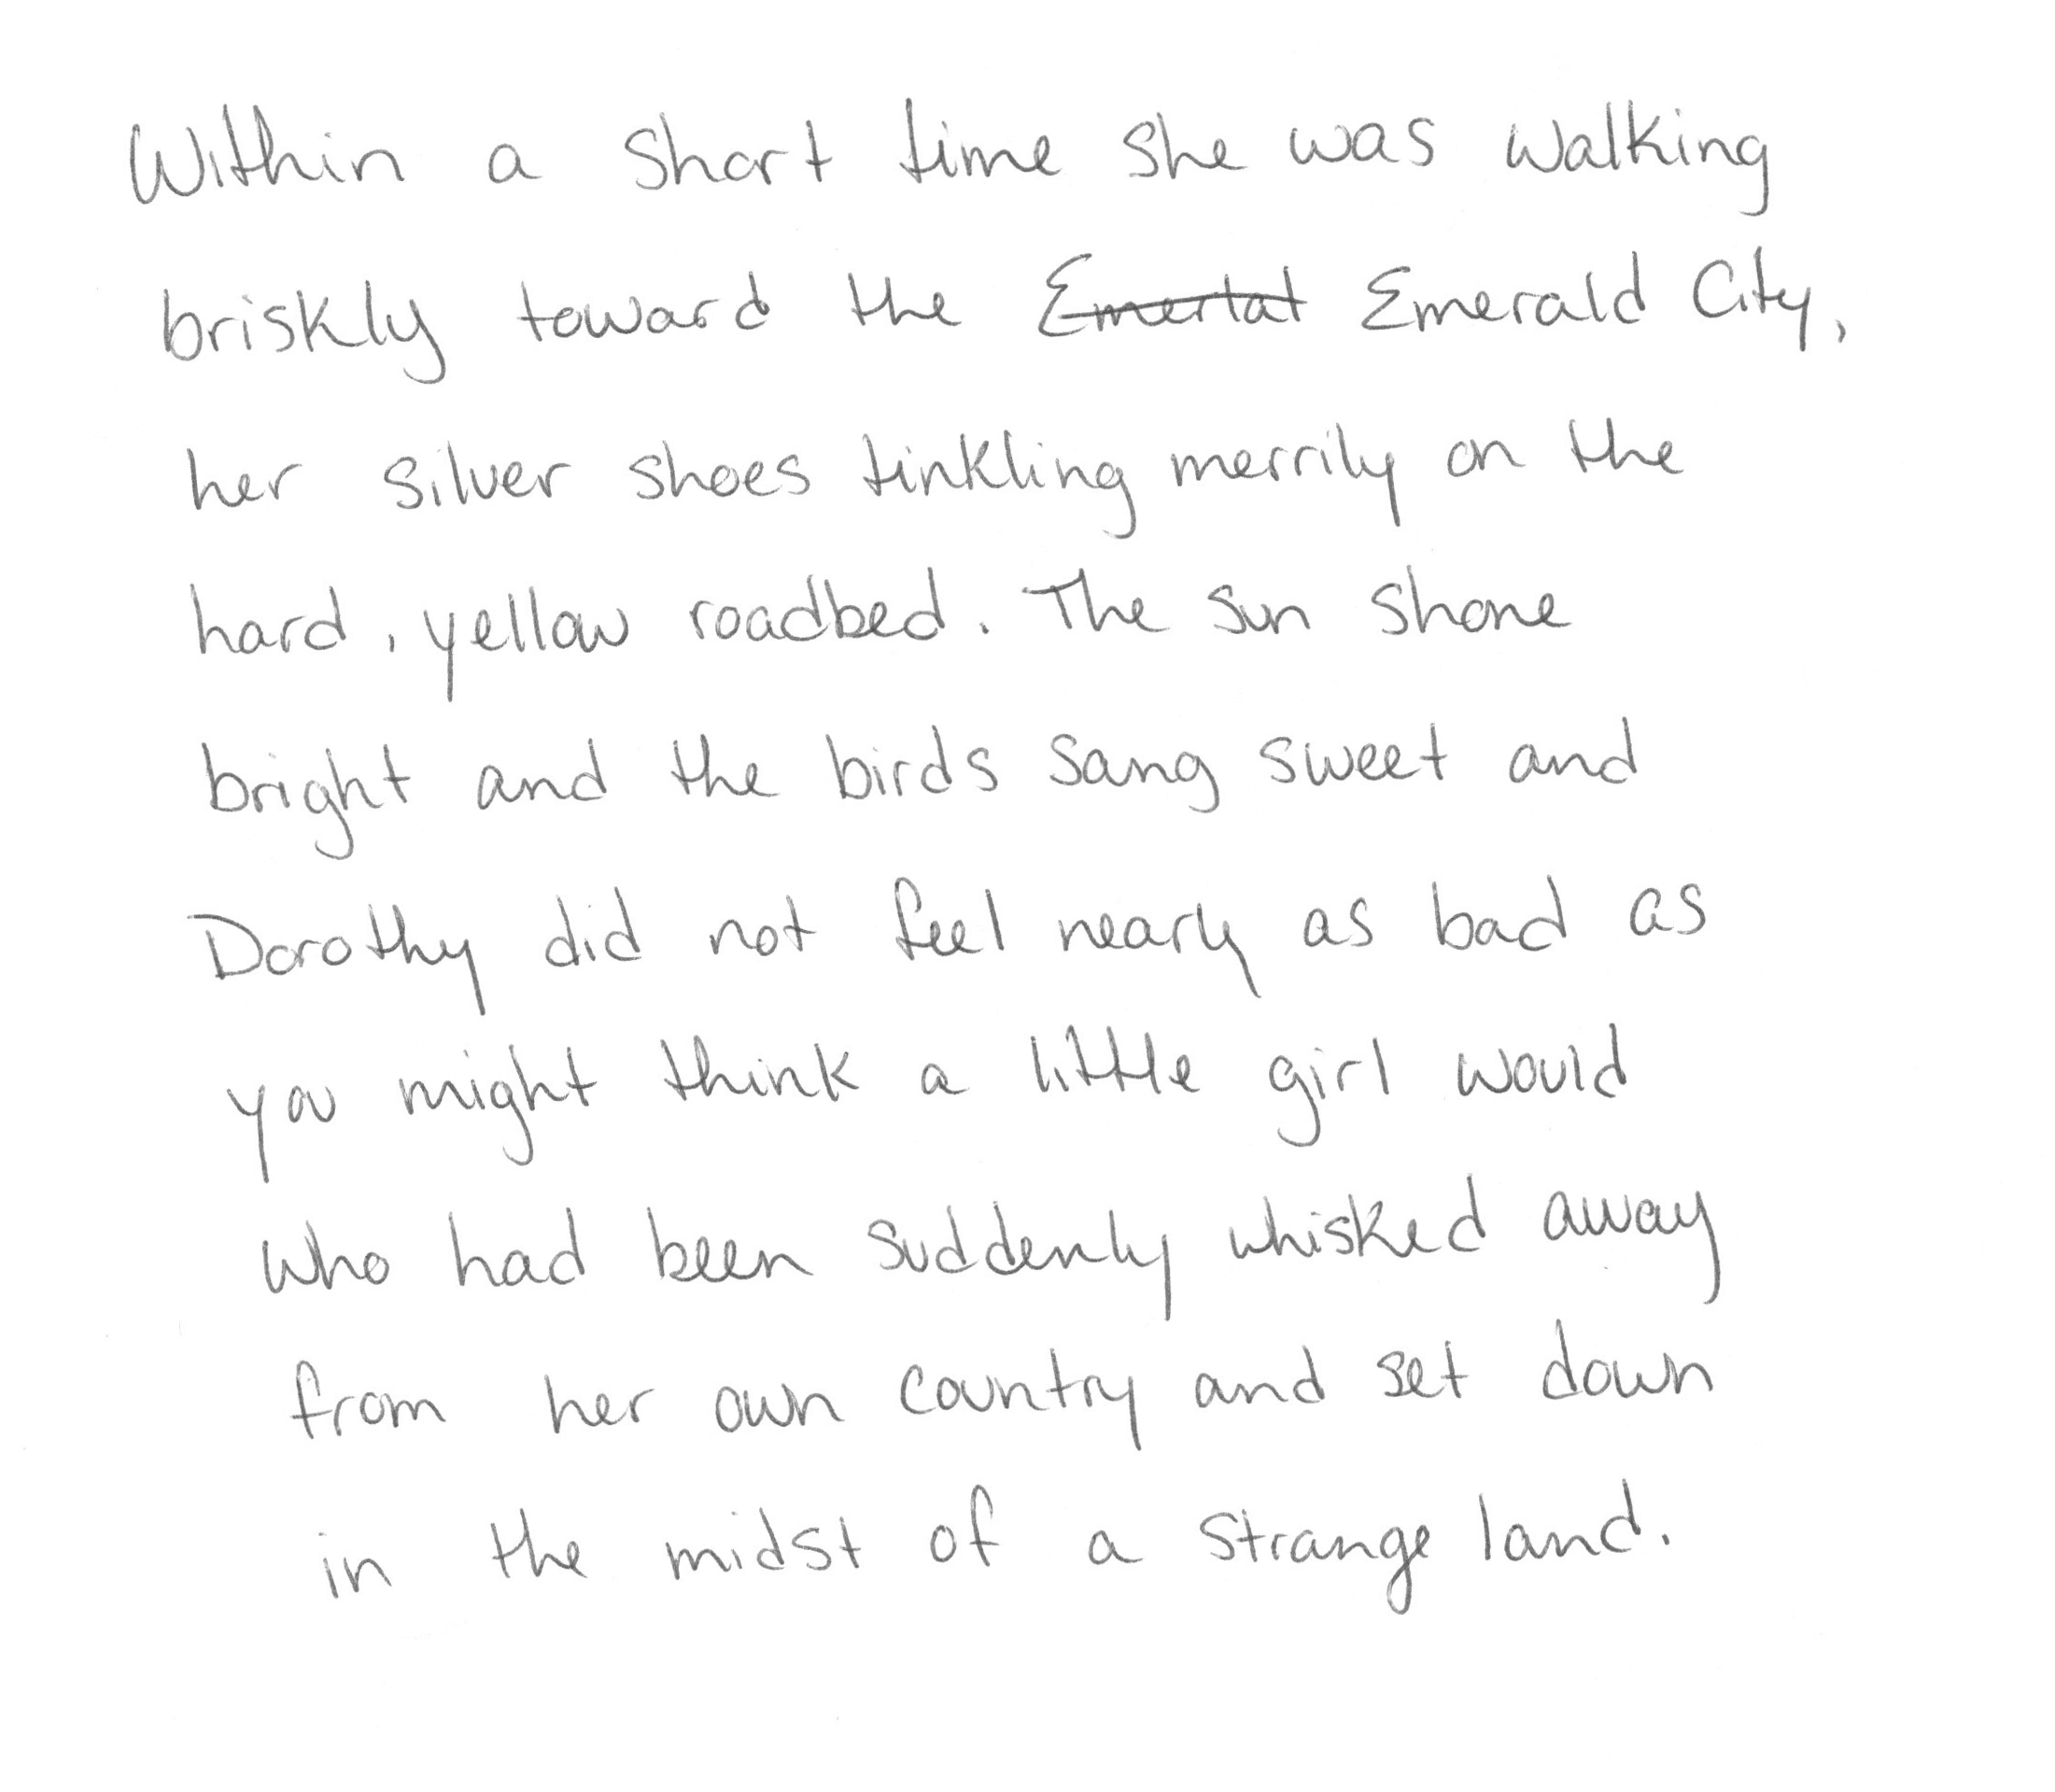 Within a short time she was walking
briskly toward the Emerald City,
her silver shoes tinkling merrily on the
hard, yellow roadbed. The sun shone
bright and the birds sang sweet and
Dorothy did not feel nearly as bad as
you might think a little girl would
who had been suddenly whisked away
from her own country and set down
in the midst of a strange land.